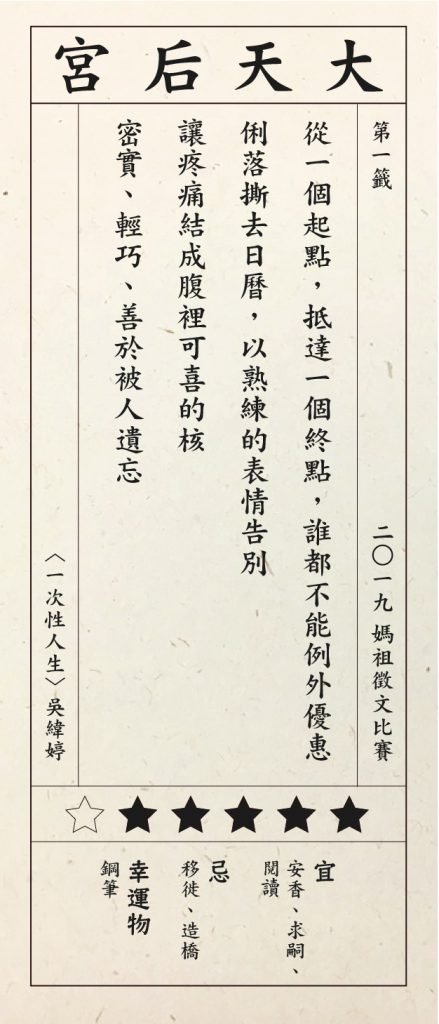 大天后宮
第一籤
二〇一九媽祖徵文比賽
從一個起點，抵達一個終點，誰都不能例外優惠
俐落撕去日曆，以熟練的表情告別
讓疼痛結成腹裡可喜的核
密實、輕巧、善於被人遺忘
〈一次性人生〉吳緯婷
宜
安香、求嗣、
閱讀
忌
移徙、造橋
幸運物
鋼筆